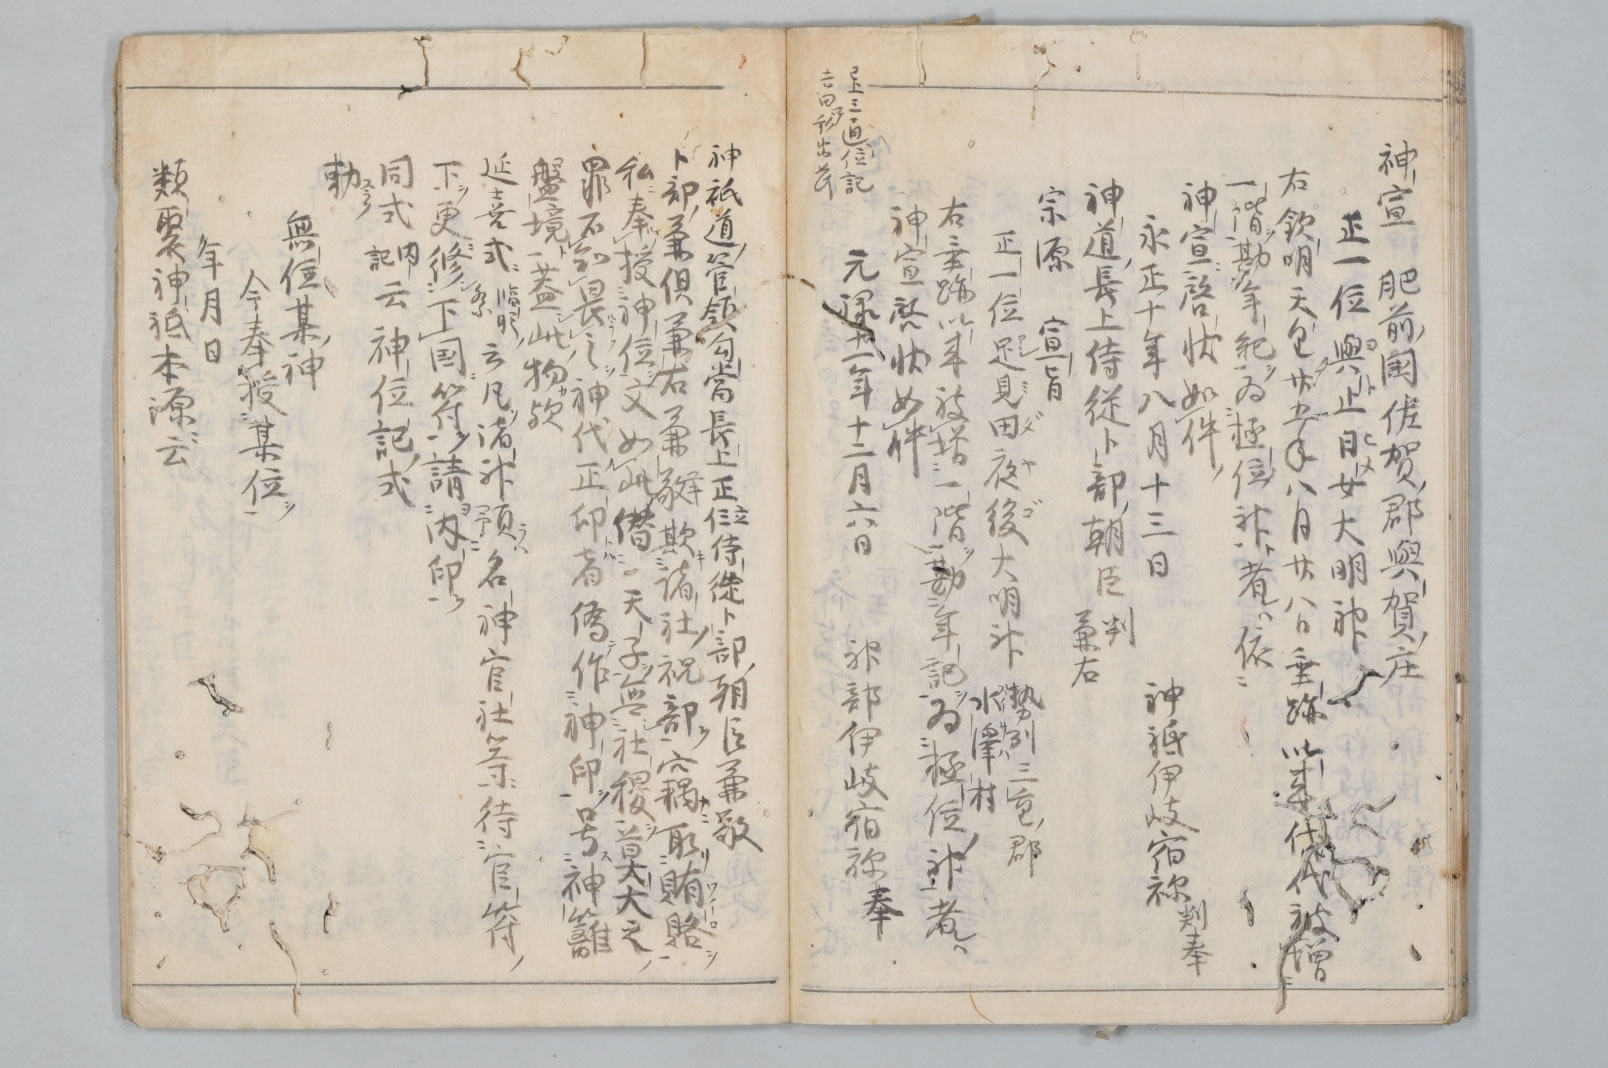 神宣 肥前国佐賀郡與賀庄
正一位與止日女大明神
右欽明天皇廿五年八月廿八日垂跡以来代代被増
一階勘年紀為極位神者依
神宣啓状如件
永正十年八月十三日 神祇伊岐宿祢判奉
神道長上侍従卜部朝臣判
兼右
宗源 宣旨
正一位足見田夜後大明神 勢列三重郡
水澤村
右垂跡以来被増一階勘年記為極位神者
神宣啓状如件
元禄十一年十二月六日 神部伊岐宿祢奉
足上三通位記
吉田 出所
神祇道管領勾當長上正三位侍従卜部朝臣兼敬
卜部兼倶兼右兼敬等欺諸社祝部竊取賄賂
私奉授神位文如此僣天子無社稷莫大之
罪不知畏之神代正印者偽作神印号神籬
盤境蓋此物欤
延喜式臨時祭云凡諸神預名神官社等待官符
下更修下国符請内印
同式内記云神位記式
勅
無位某神
今奉授某位
年月日
類聚神祇本源云